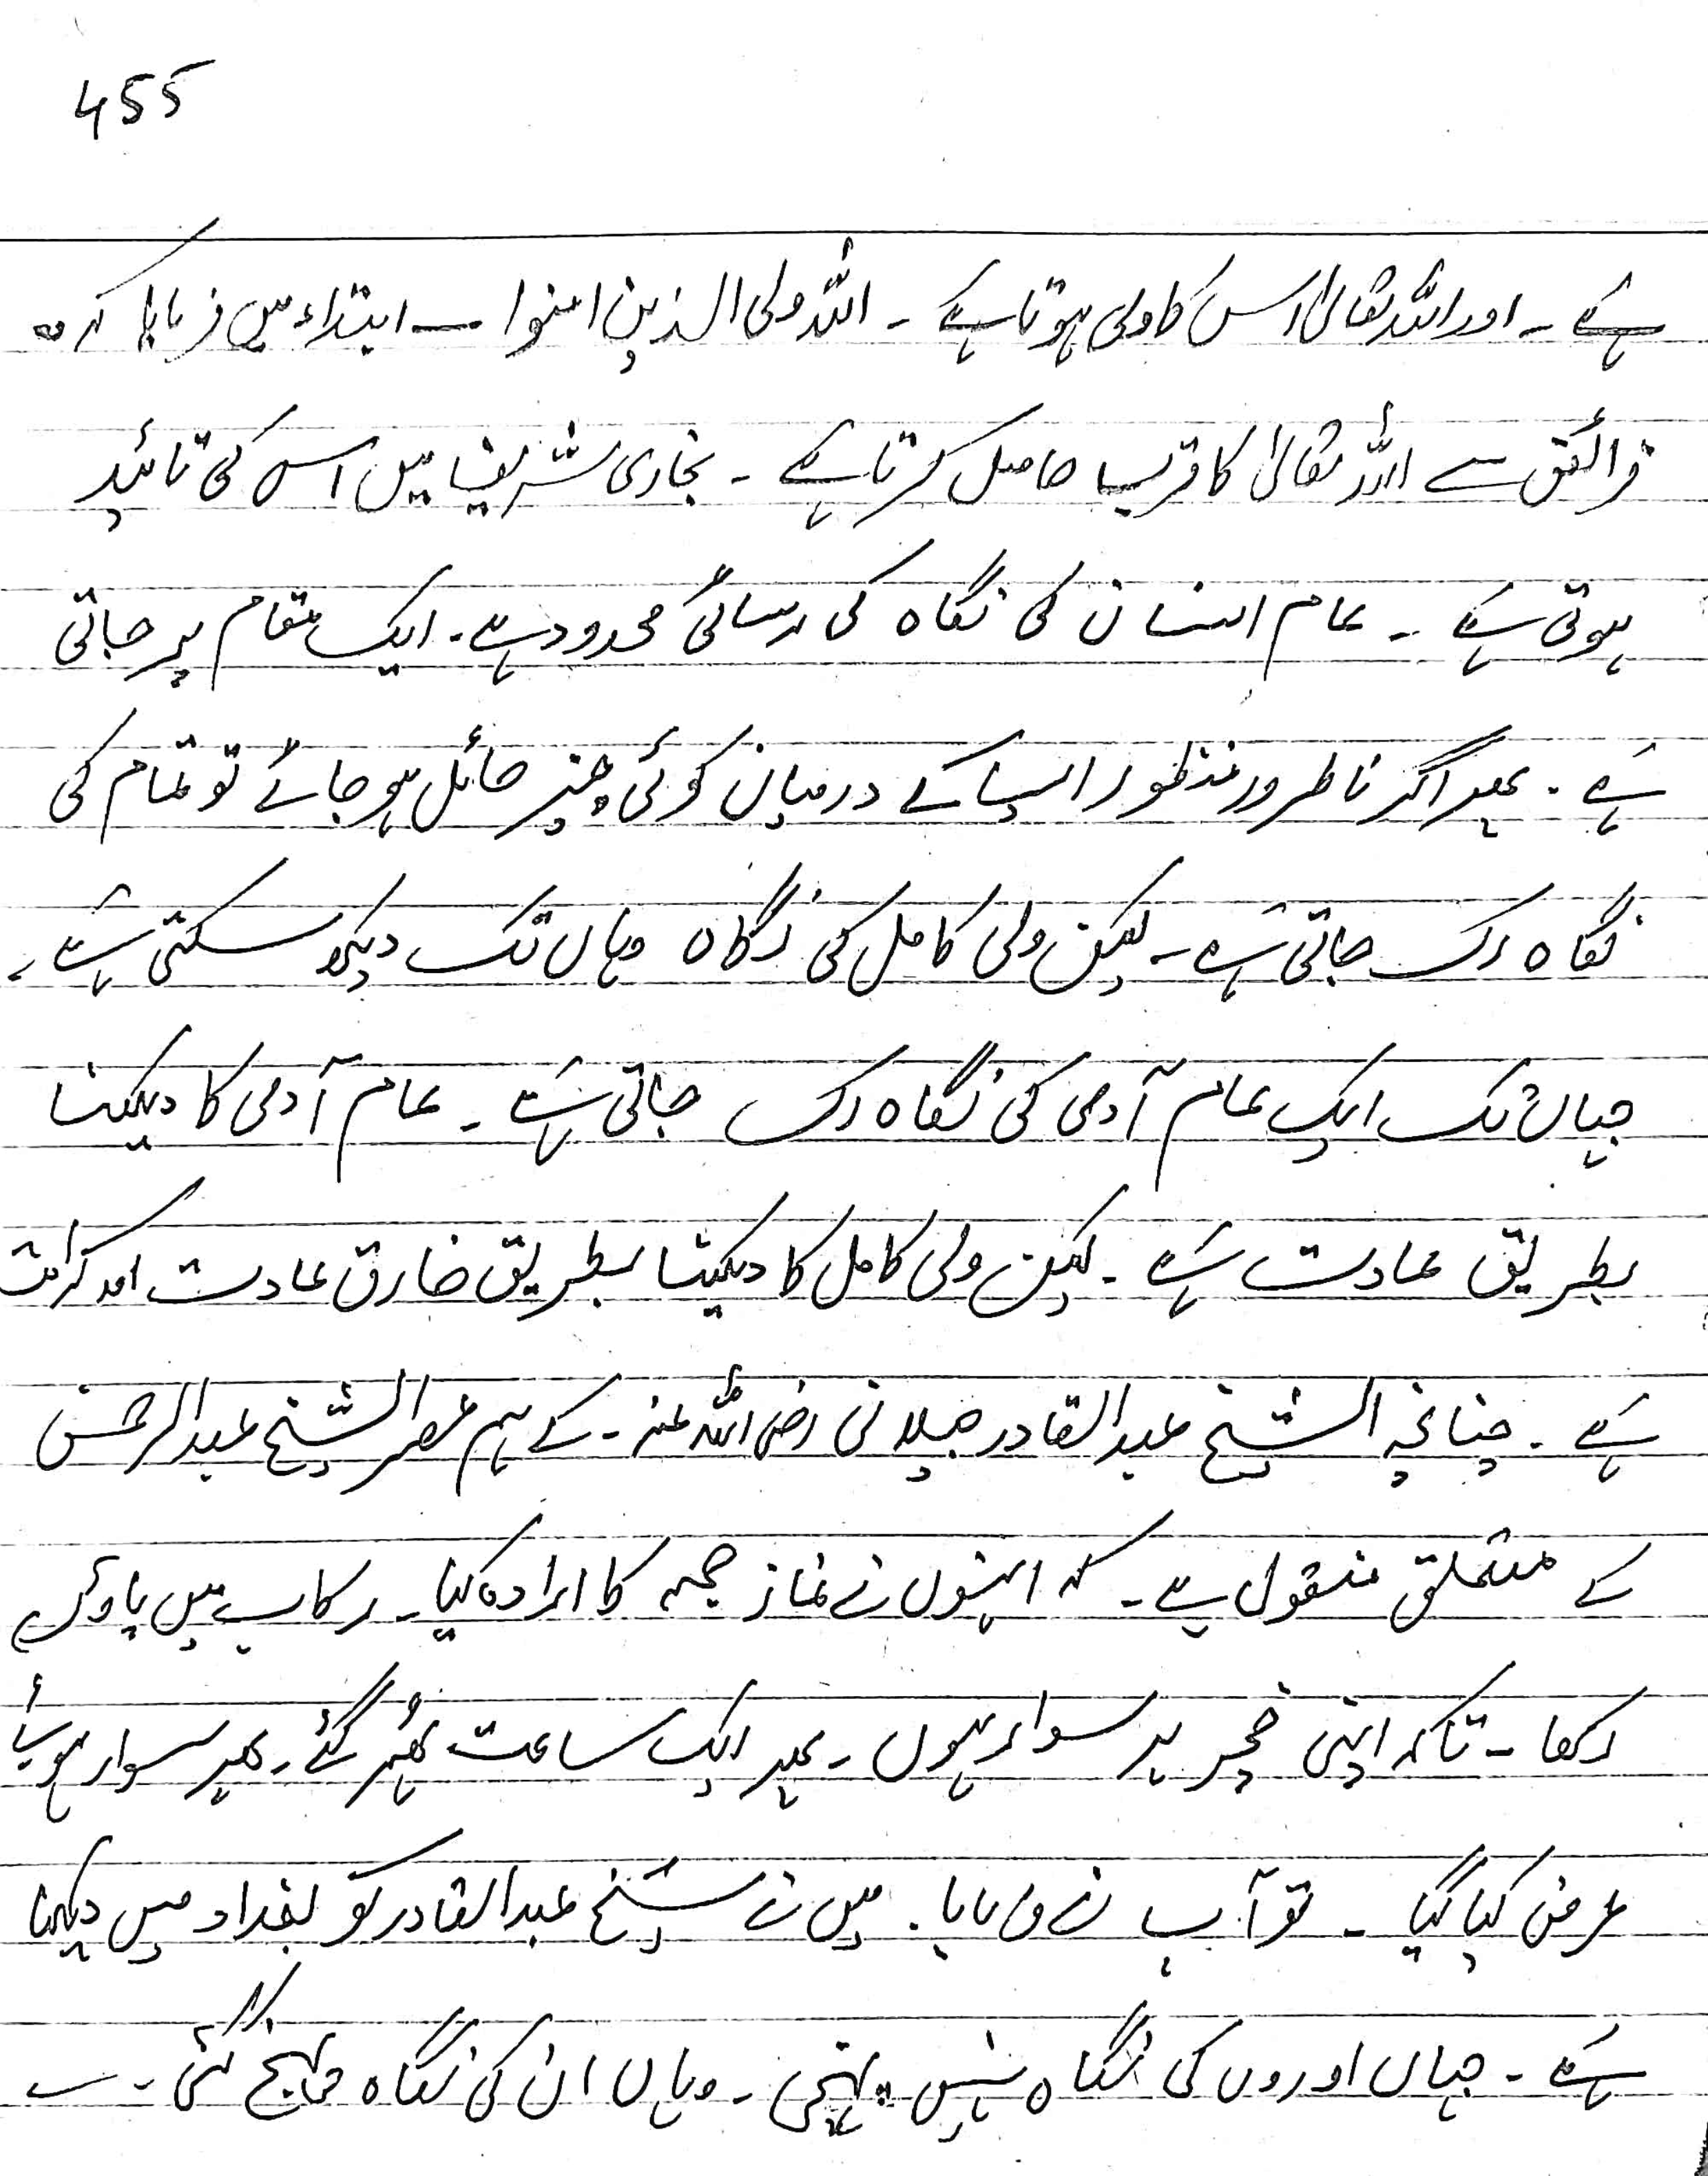 455
ہے ۔ اور اللہ تعالیٰ اس کا ولی ہوتا ہے ۔ اللہ ولی الذین امنوا ۔ ابتداء میں فرمایا کہ وہ
فرائض سے اللہ تعالیٰ کا قرب حاصل کرتا ہے ۔ بخاری شریف میں اس کی تائید
ہوتی ہے ۔ عام انسان کی نگاہ کی رسائی محدود ہے ۔ ایک مقام پر جاتی
ہے ۔ پھر اگر ناظر ور منظور الیہ کے درمیان کوئی چیز حائل ہو جائے تو تمام کی
نگاہ رک جاتی ہے ۔ لیکن ولی کامل کی نگاہ وہاں تک دیکھ سکتی ہے ۔
جہاں تک ایک عام آدمی کی نگاہ رک جاتی ہے ۔ عام آدمی کا دیکھنا
بطریق عادت ہے ۔ لیکن ولی کامل کا دیکھنا بطریق خارق عادت اور کرامت
ہے ۔ چنانچہ الشیخ عبدالقادر جیلانی رضی اللہ عنہ ۔ کے ہم عصر الشیخ عبدالرحمن
کے متعلق منقول ہے ۔ کہ انہوں نے نماز جمعہ کا ارادہ کیا ۔ رکاب میں پاؤں
رکھا ۔ تاکہ اپنی خچر پر سوار ہوں ۔ پھر ایک ساعت ٹھہر گئے ۔ پھر سوار ہوئے
عرض کیا گیا ۔ تو آپ نے فرمایا ۔ میں نے شیخ عبدالقادر کو بغداد میں دیکھا
ہے ۔ جہاں اوروں کی نگاہ نہیں پہنچی ۔ وہاں ان کی نگاہ پہنچ گئی ۔